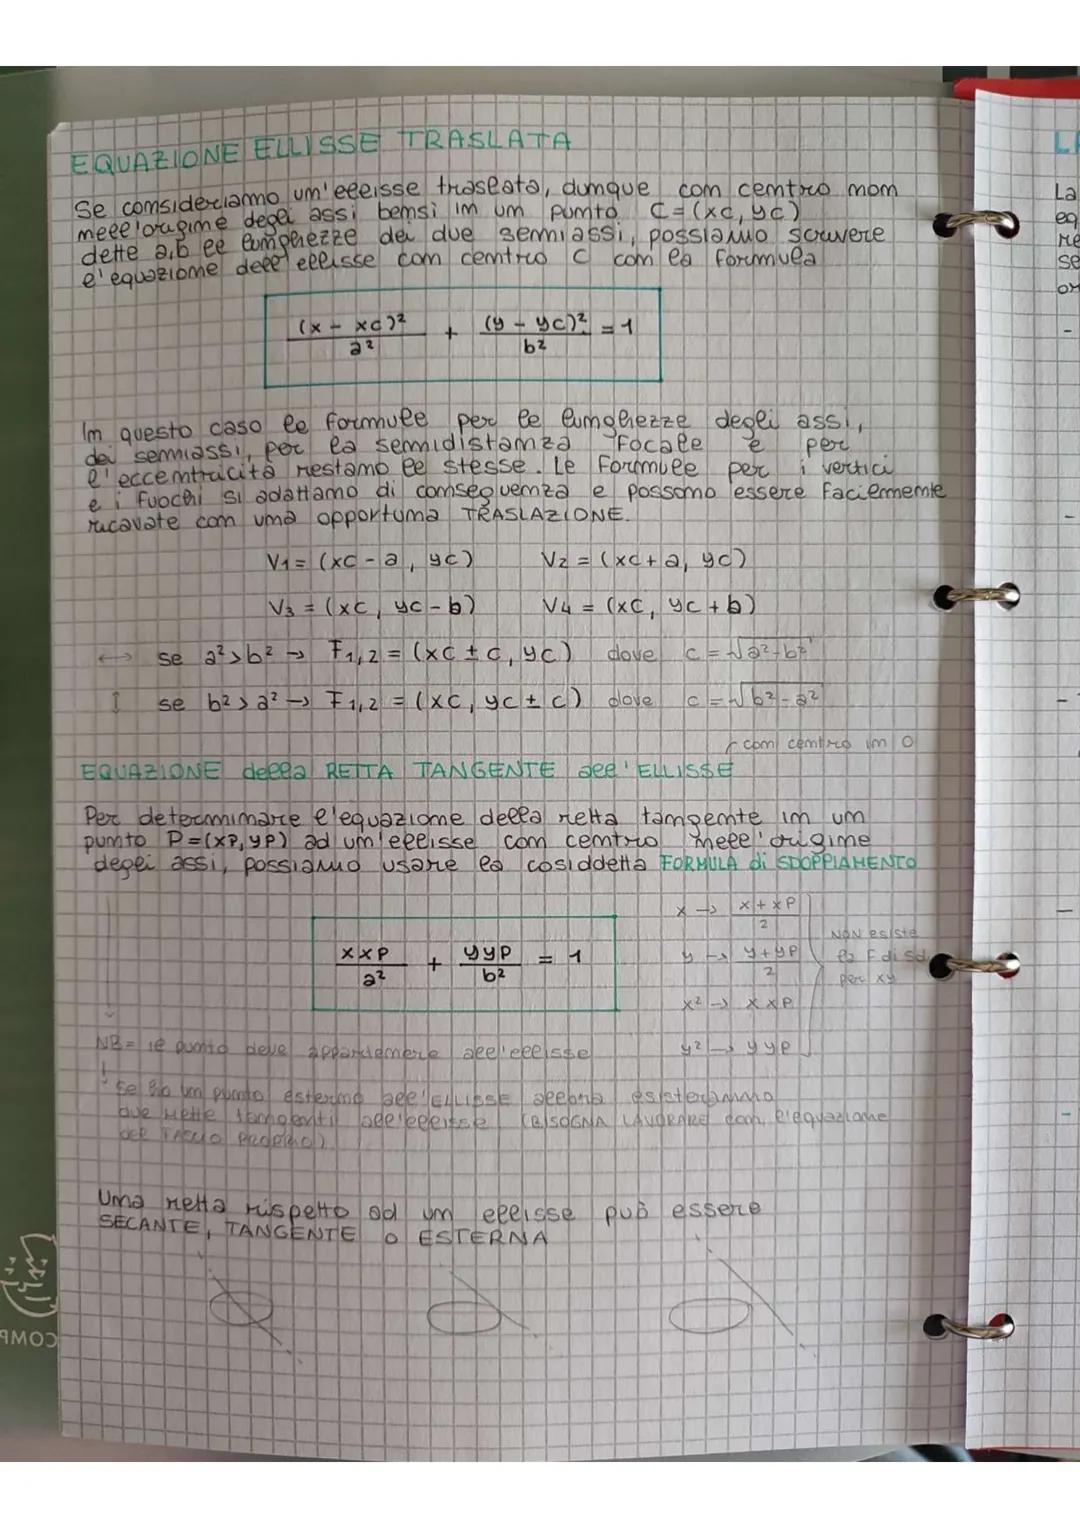 EQUAZIONE ELLISSE TRASLATA
Se consideriamo un'ellisse traslata, dunque con centro non
nell'origine degli assi bensì in un punto C=(xc, yc)
dette a,b le lunghezze dei due semiassi, possiamo scrivere
l'equazione dell'ellisse con centro C con la formula
(x - xc)²/a² + (y - yc)²/b² = 1
In questo caso le formule per le lunghezze degli assi,
dei semiassi, per la semidistanza focale e per
l'eccentricità restano le stesse. Le formule per i vertici
e i fuochi si adattano di conseguenza e possono essere facilmente
ricavate con una opportuna TRASLAZIONE.
V1 = (xc - a, yc) V2 = (xc + a, yc)
V3 = (xc, yc - b) V4 = (xc, yc + b)
↔ se a²>b² → F1,2 = (xc ± c, yc) dove c = √a²-b²
↕ se b²>a² → F1,2 = (xc, yc ± c) dove c = √b²-a²
con centro in O
EQUAZIONE della RETTA TANGENTE all'ELLISSE
Per determinare l'equazione della retta tangente in un
punto P=(xP, yP) ad un'ellisse con centro nell'origine
degli assi, possiamo usare la cosiddetta FORMULA di SDOPPIAMENTO
x x P/a² + y y P/b² = 1
x → x + xP/2
y → y + yP/2
x² → x xP
y² → y yP
NON esiste
la F di sd
per xy
NB = il punto deve appartenere all'ellisse
se ho un punto esterno all'ELLISSE allora esisteranno
due rette tangenti all'ellisse (BISOGNA LAVORARE con l'equazione
del FASCIO PROPRIO)
Una retta rispetto ad un ellisse può essere
SECANTE, TANGENTE O ESTERNA
COMP
La
eq
re
se